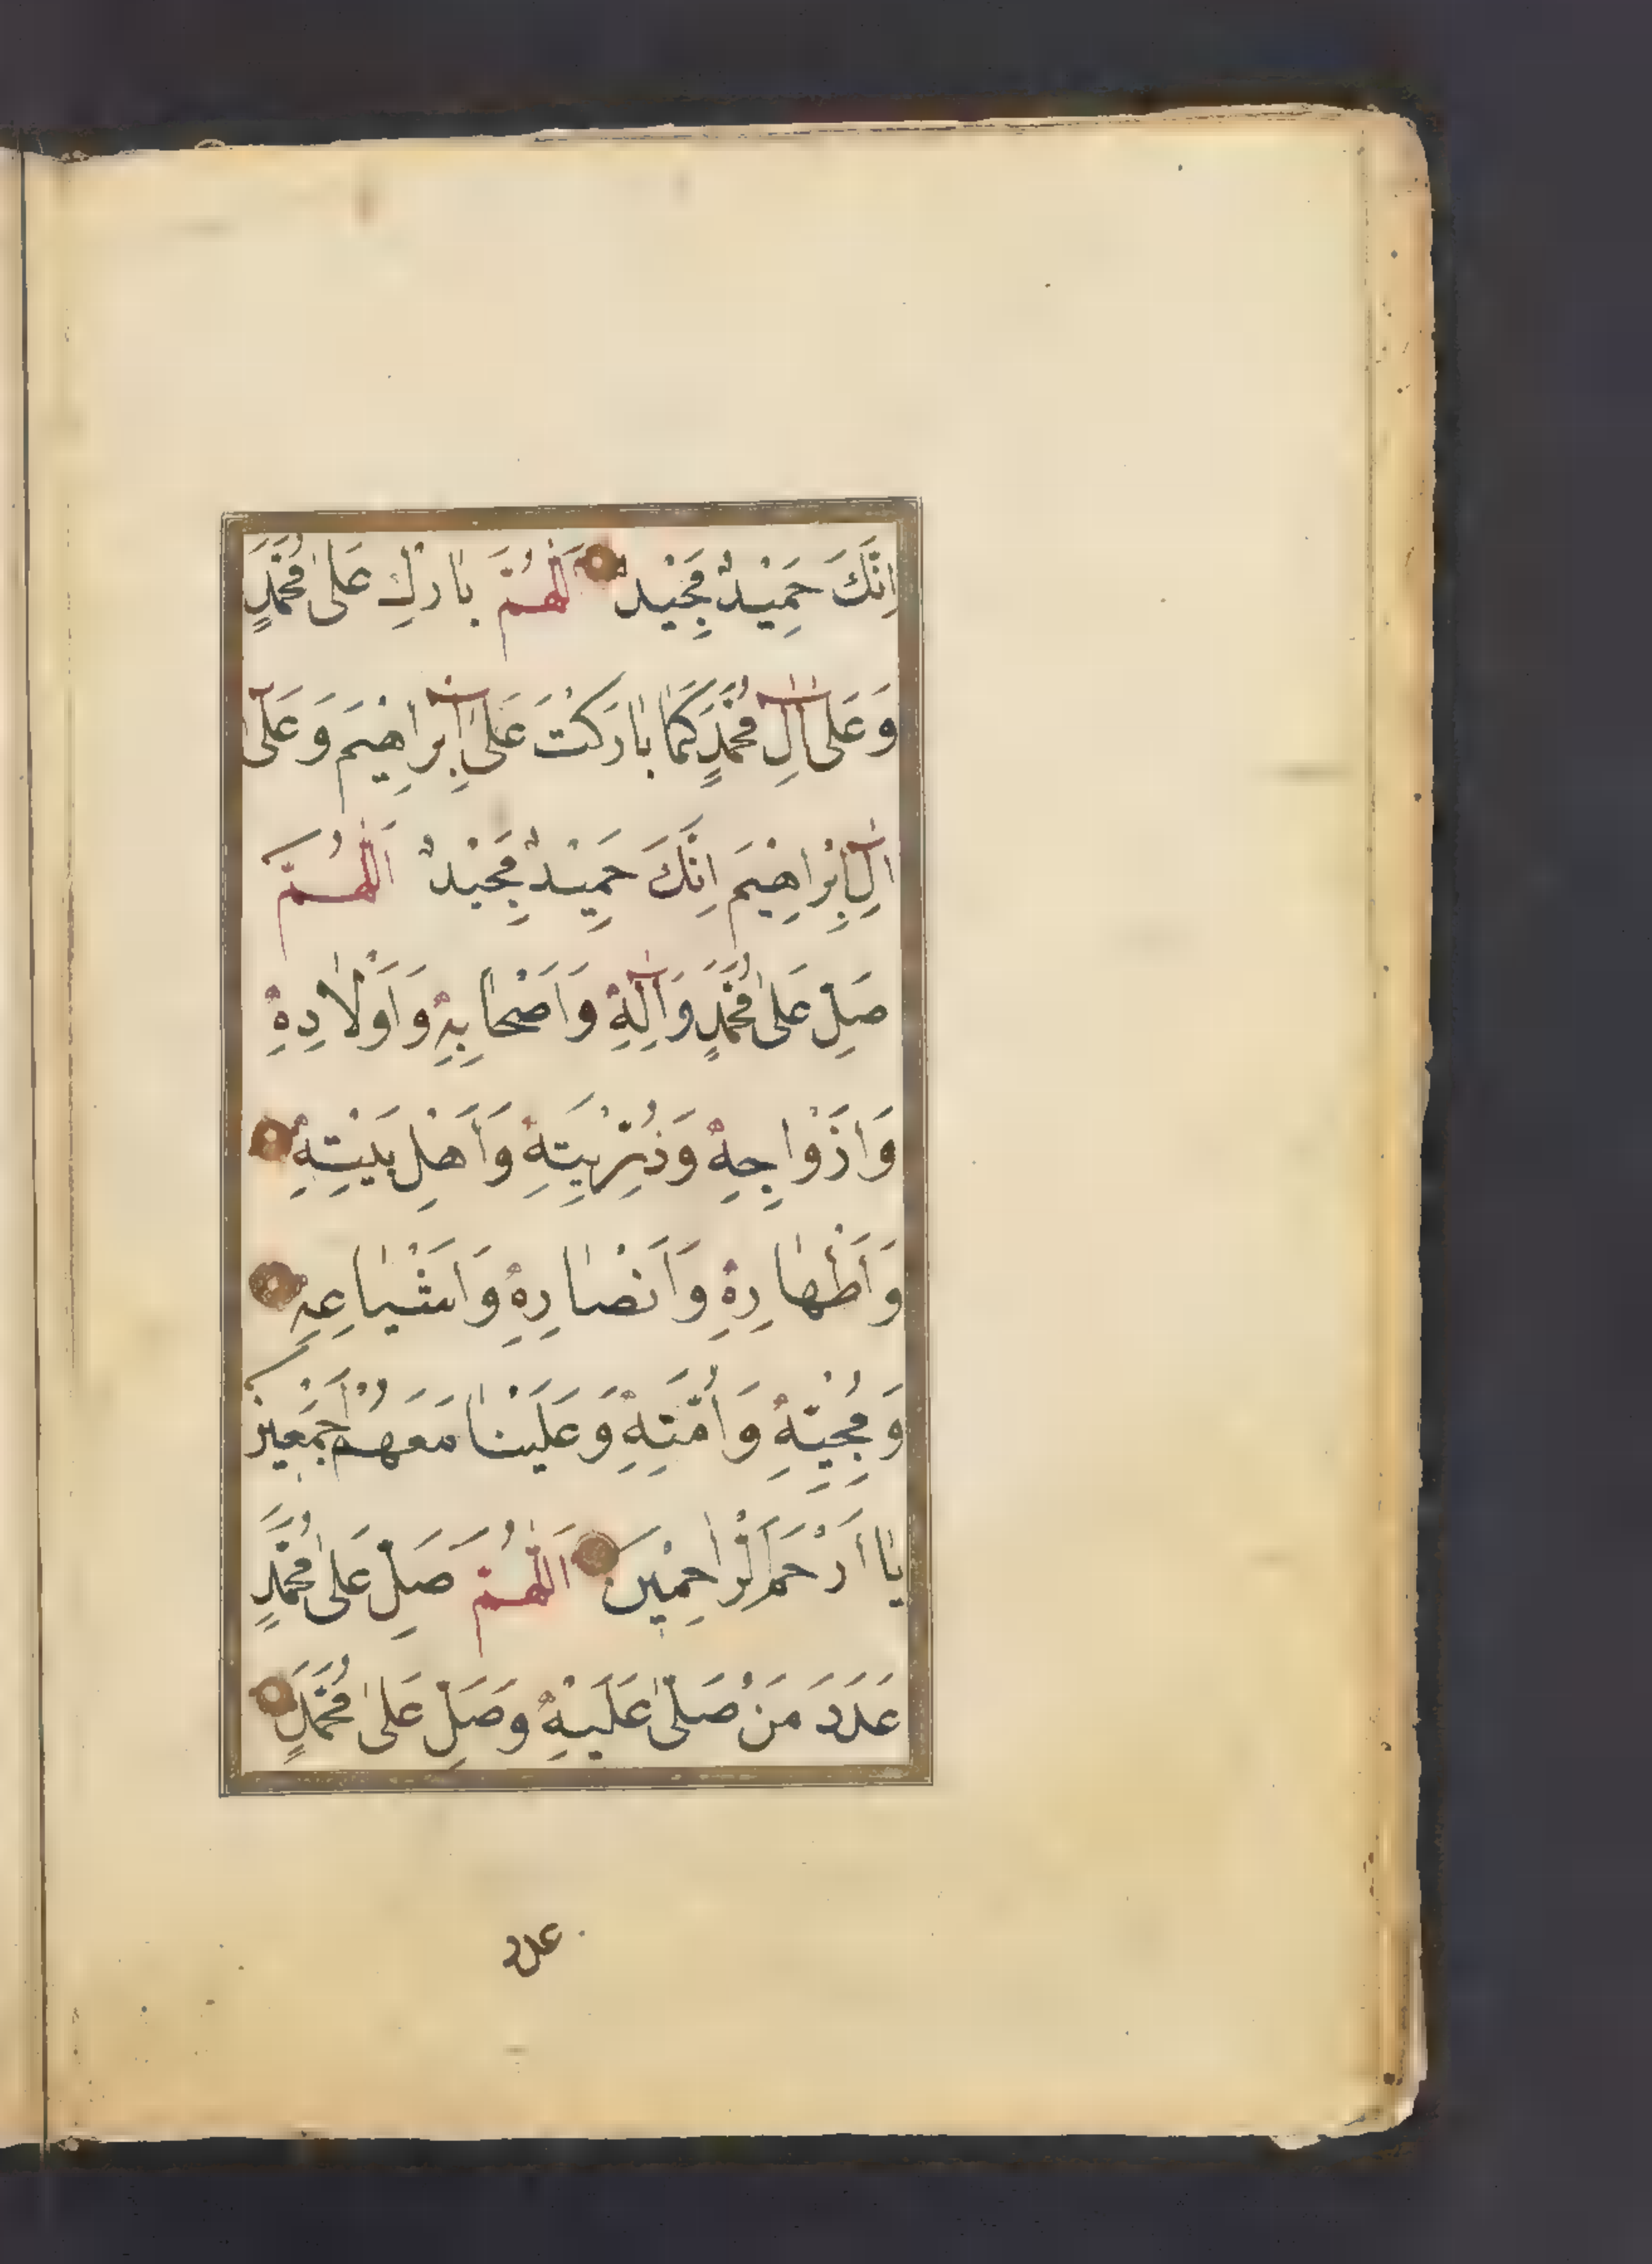 اِنَّكَ حَمِيْدٌ مَجِيْدٌ اَللّٰهُمَّ بَارِكْ عَلٰى مُحَمَّدٍ
وَعَلٰى اٰلِ مُحَمَّدٍ كَمَا بَارَكْتَ عَلٰى اِبْرَاهِيْمَ وَعَلٰى
اٰلِ اِبْرَاهِيْمَ اِنَّكَ حَمِيْدٌ مَجِيْدٌ اَللّٰهُمَّ
صَلِّ عَلٰى مُحَمَّدٍ وَاٰلِهِ وَاَصْحَابِهِ وَاَوْلَادِهِ
وَاَزْوَاجِهِ وَذُرِّيَّتِهِ وَاَهْلِ بَيْتِهِ
وَاَصْهَارِهِ وَاَنْصَارِهِ وَاَشْيَاعِهِ
وَمُحِبِّيْهِ وَاُمَّتِهِ وَعَلَيْنَا مَعَهُمْ اَجْمَعِيْنَ
يَا اَرْحَمَ الرَّاحِمِيْنَ اَللّٰهُمَّ صَلِّ عَلٰى مُحَمَّدٍ
عَدَدَ مَنْ صَلّٰى عَلَيْهِ وَصَلِّ عَلٰى مُحَمَّدٍ
عدد